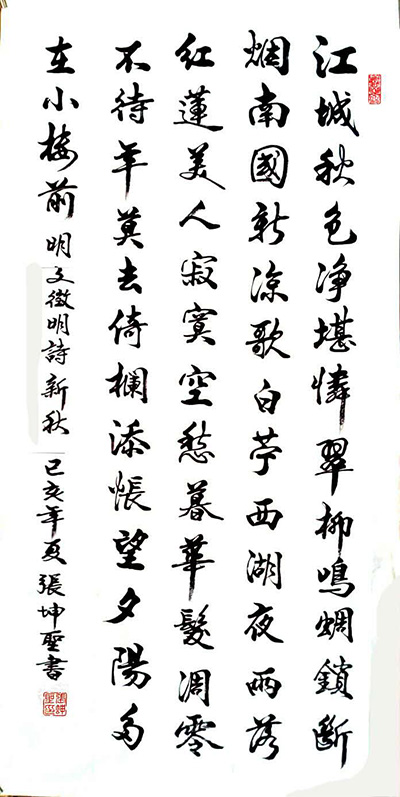 江城秋色净堪憐翠柳鳴蜩鎖斷
烟南國新凉歌白苧西湖夜雨落
紅蓮美人寂寞空愁暮華髮凋零
不待年莫去倚欄添悵望夕陽多
在小樓前 明文徵明詩新秋 己亥年夏張坤聖書